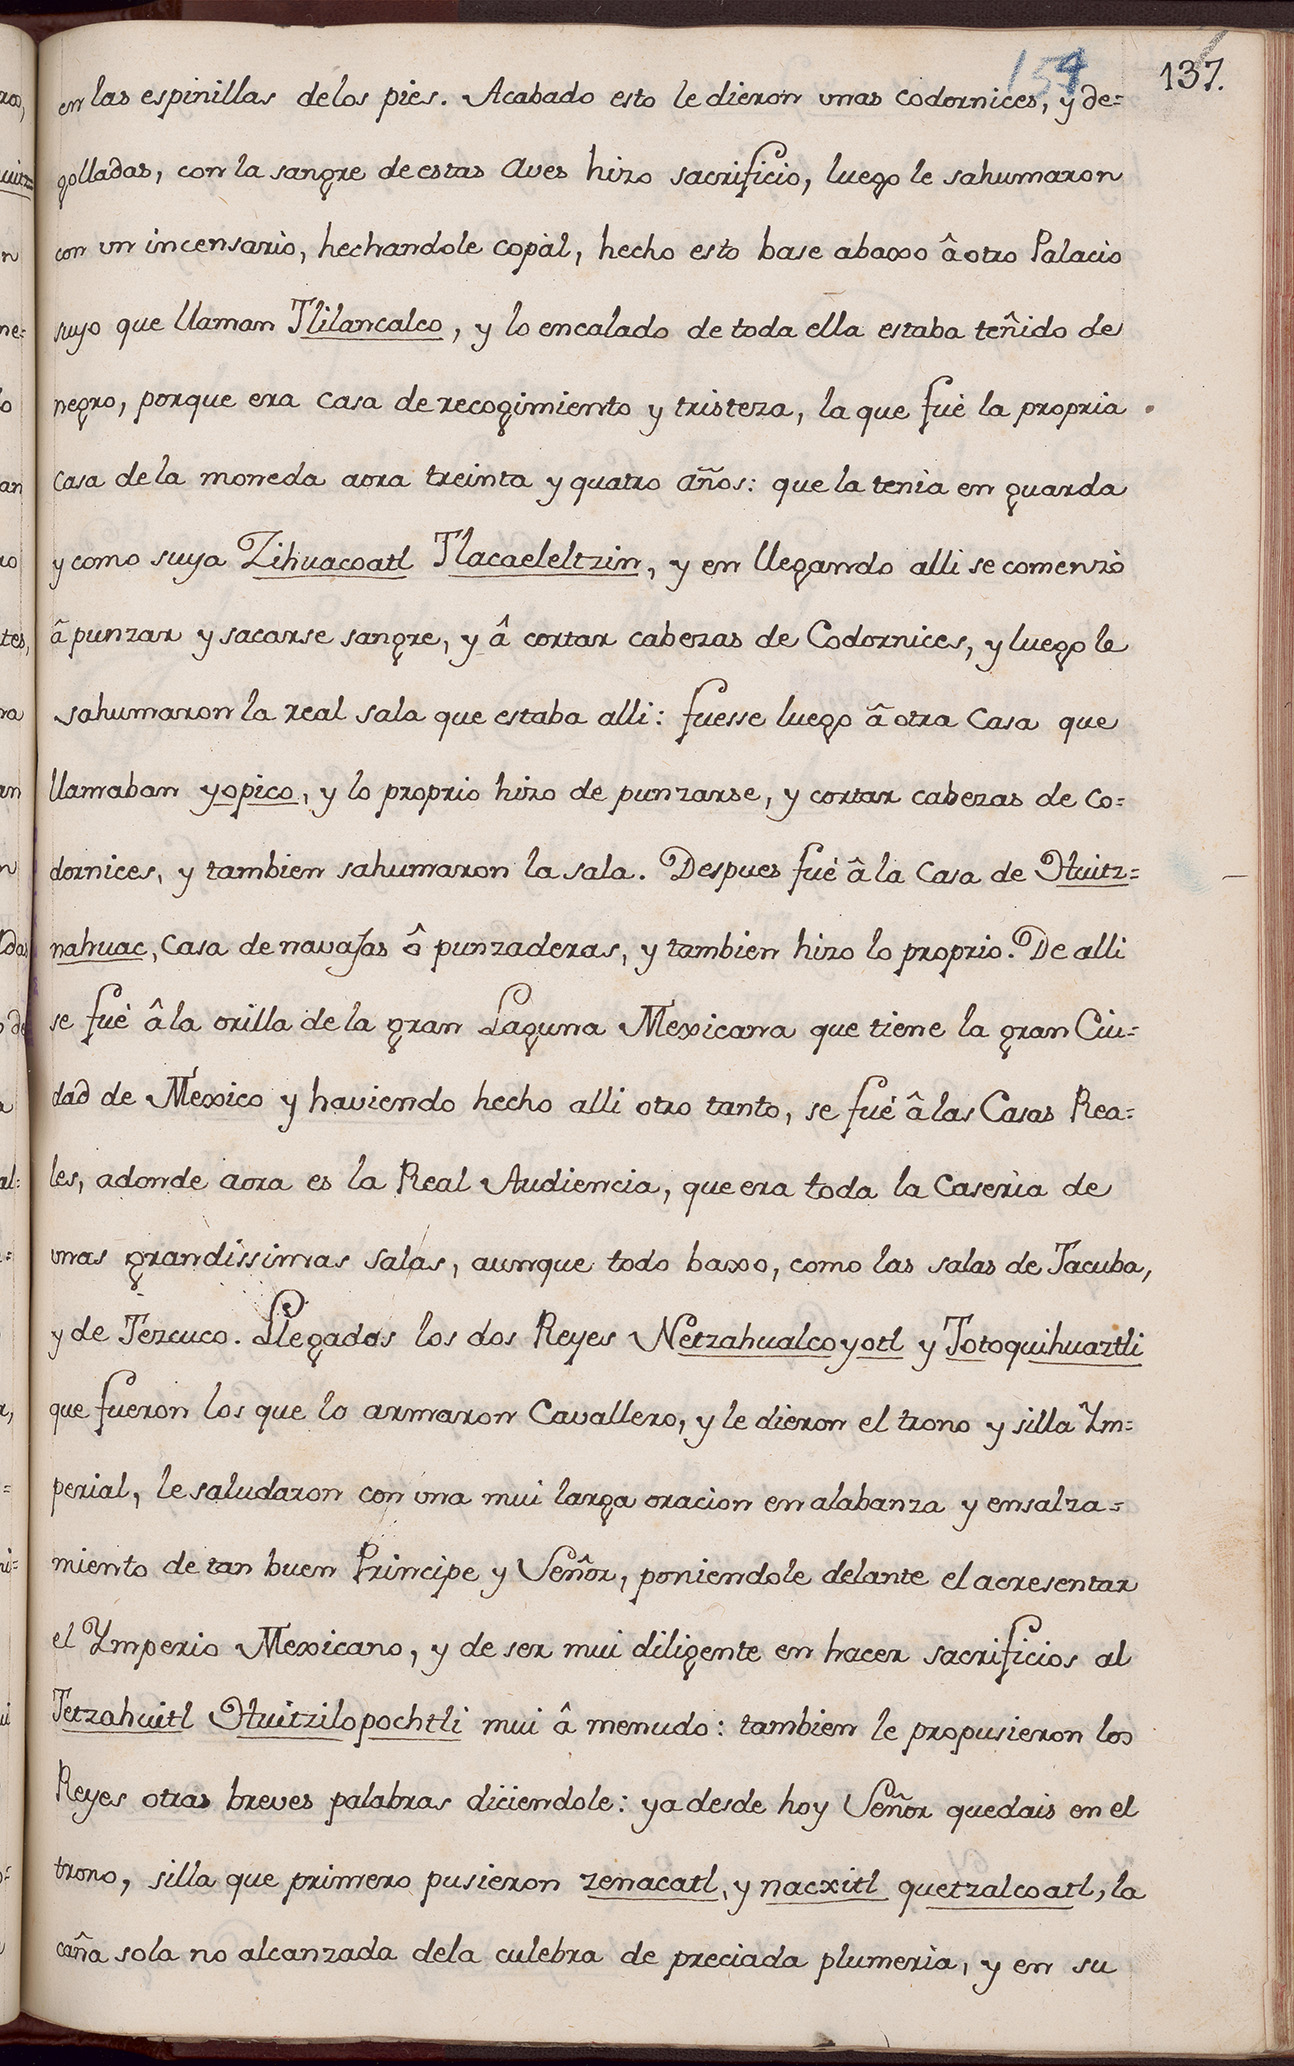 154
137.
en las espinillas delos pies. Acabado esto le dieron unas codornices, y de=
golladas, con la sangre de estas Aves hizo sacrificio, luego le sahumaron
con un incensario, hechandole copàl, hecho esto base abaxo â otro Palacio
suyo que llaman Tlilancalco, y lo encalado de toda ella estaba teñido de
negro, porque era casa de recogimiento y tristeza, la que fuè la propria
casa de la moneda aora treinta y quatro años: que la tenia en guarda
y como suya Zihuacoatl Tlacaeleltzin, y en llegando alli se comenzò
â punzar y sacarse sangre, y â cortar cabezas de Codornices, y luego le
sahumaron la real sala que estaba alli: fuesse luego â otra Casa que
llamaban yopico, y lo proprio hizo de punzarse, y cortar cabezas de co=
dornices, y tambien sahumaron la sala. Despues fuè â la Casa de Huitz=
nahuac, Casa de navajas ô punzaderas, y tambien hizo lo proprio. De alli
se fuè â la orilla de la gran Laguna Mexicana que tiene la gran Ciu=
dad de Mèxico y haviendo hecho alli otro tanto, se fuè â las Casas Rea=
les, adonde aora es la Real Audiencia, que era toda la Caserìa de
unas grandissimas salas, aunque todo baxo, como las salas de Tacuba,
y de Tezcuco. Llegados los dos Reyes Netzahualcoyotl y Totoquihuaztli
que fueron los que lo armaron Cavallero, y le dieron el trono y silla Ym=
perial, le saludaron con una mui larga oracion en alabanza y ensalza=
miento de tan buen Principe y Señor, poniendole delante el acresentar
el Ymperio Mexicano, y de ser mui diligente en hacer sacrificios al
Tetzahuitl Huitzilopochtli mui â menudo: tambien le propusieron los
Reyes otras breves palabras diciendole: ya desde hoy Señor quedais en el
trono, silla que primero pusieron zenacatl, y nacxitl quetzalcoatl, la
caña sola no alcanzada dela culebra de preciada plumerìa, y en su